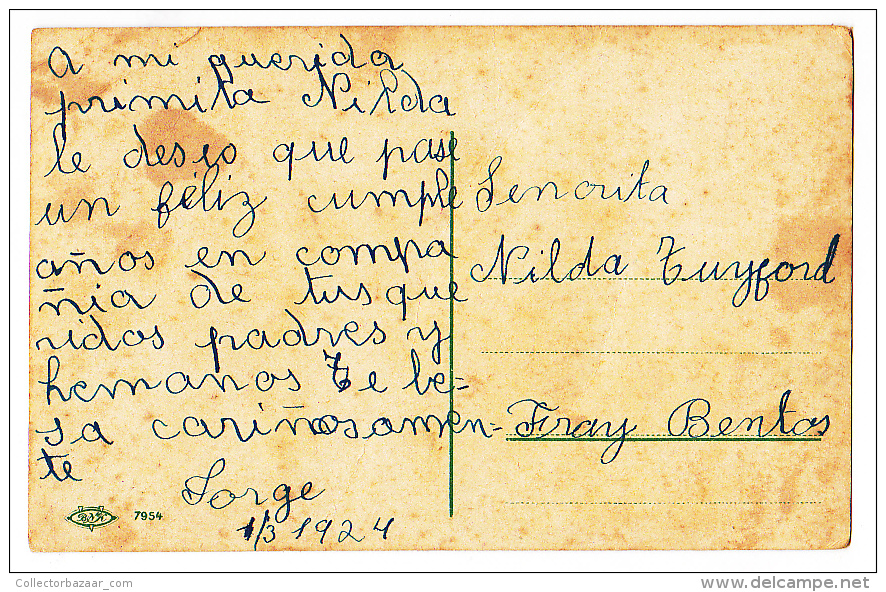 A mi querida
primita Nilda
le deseo que pase
un feliz cumple
años en compa
ñia de tus que
ridos padres y
hemanos Te be=
sa cariñosamen=
te
Jorge
1/3 1924
7954
Señorita
Nilda Tuyford
Fray Bentos
Collectorbazaar_com
http://www.delcampe.net